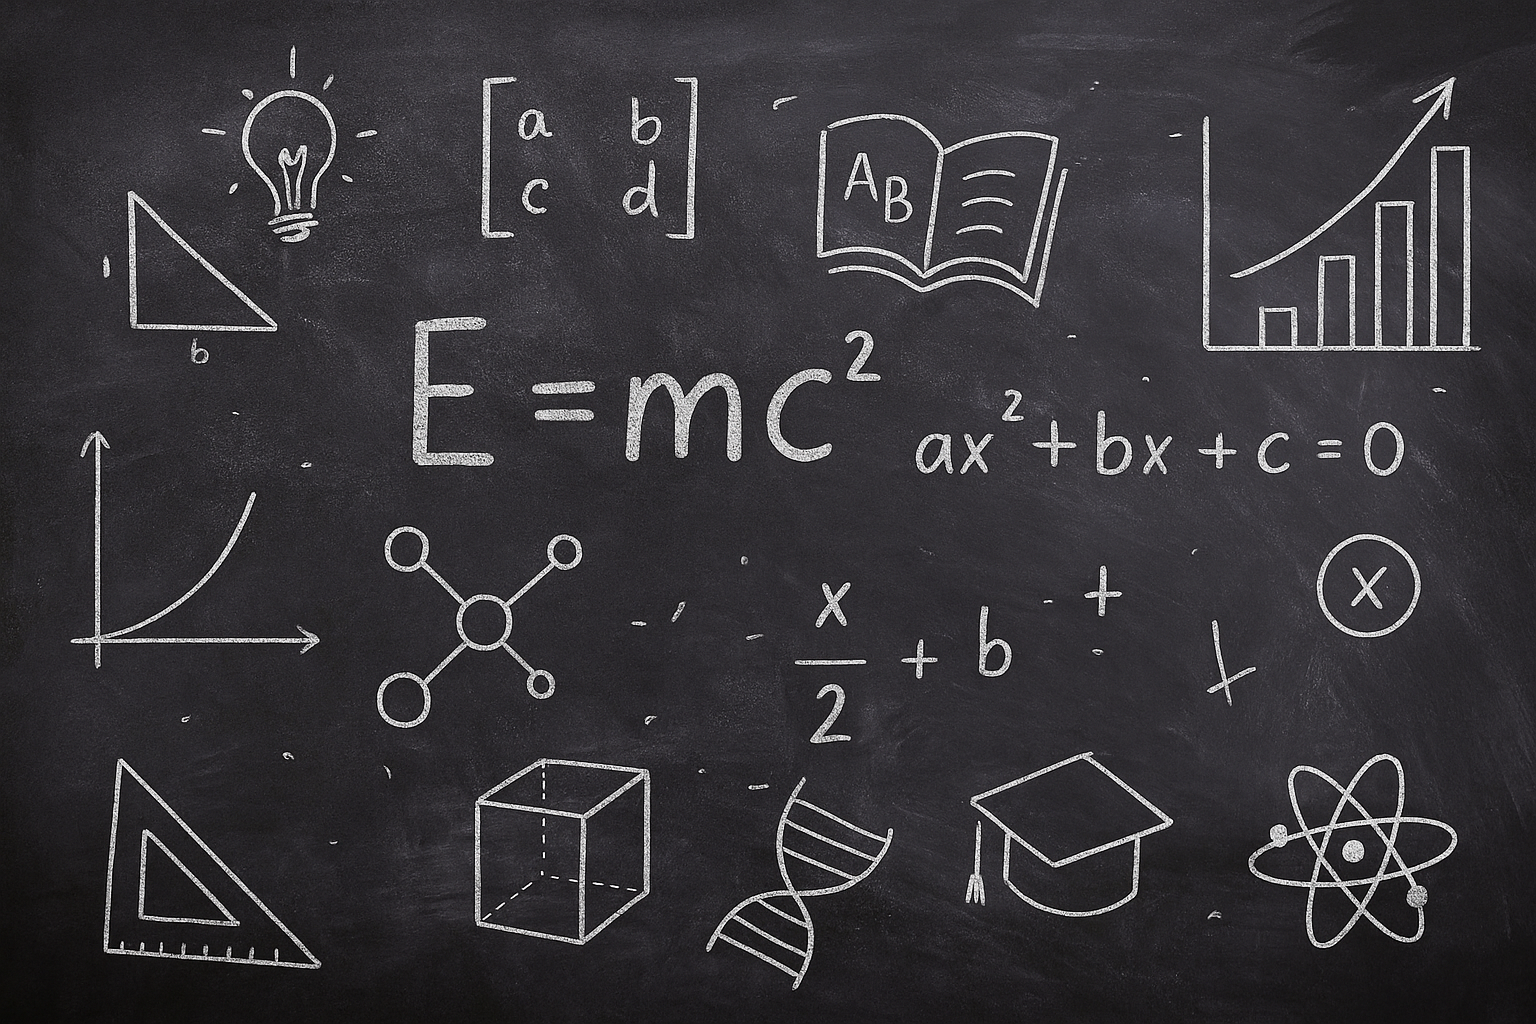 a b
c d
A
B
b
E = mc²
ax² + bx + c = 0
x
x/2 + b
+